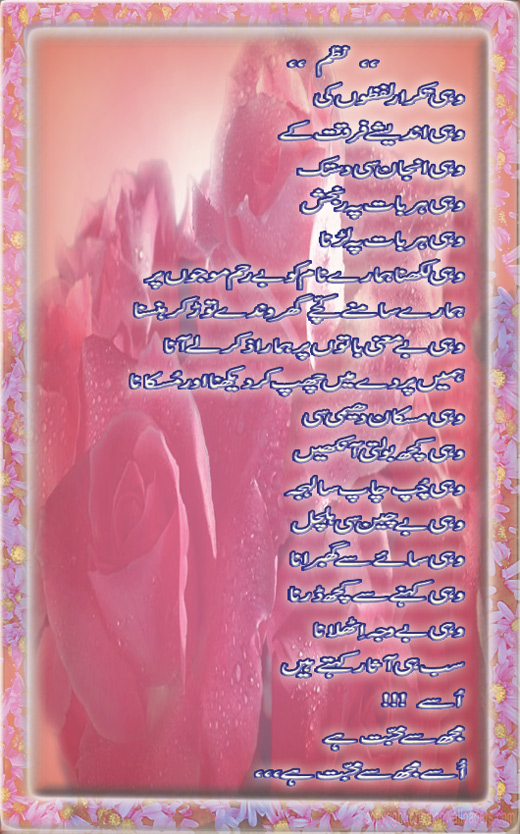 ،، نظم ،،
وہی تکرار لفظوں کی
وہی اندیشے فرقت کے
وہی انجان سی دستک
وہی ہر بات پہ رنجش
وہی ہر بات پہ لڑنا
وہی لکھنا ہمارے نام کو بے رحم موجوں پر
ہمارے سامنے کچے گھروندے توڑ کر ہنسنا
وہی بے معنی باتوں پر ہمارا ذکر لے آنا
ہمیں پردے میں چھپ کر دیکھنا اور مُسکانا
وہی مسکان دھیمی سی
وہی کچھ بولتی آنکھیں
وہی چُپ چاپ سا لہجہ
وہی بے چین سی ہلچل
وہی سائے سے گھبرانا
وہی کہنے سے کچھ ڈرنا
وہی بے وجہ اٹھلانا
سب ہی آثار کہتے ہیں
اُسے !!!
مجھ سے محبت ہے
اُسے مجھ سے محبت ہے،،،،